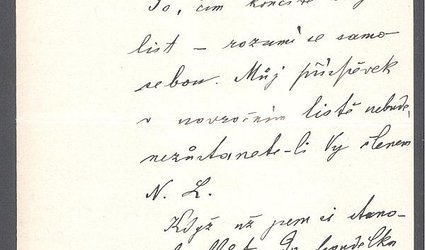 To, čím končíte Váš
list – rozumí se samo
sebou. Můj příspěvek
v novročním listě nebude,
nezůstanete-li Vy členem
N. L.
Když už jsem si stano-